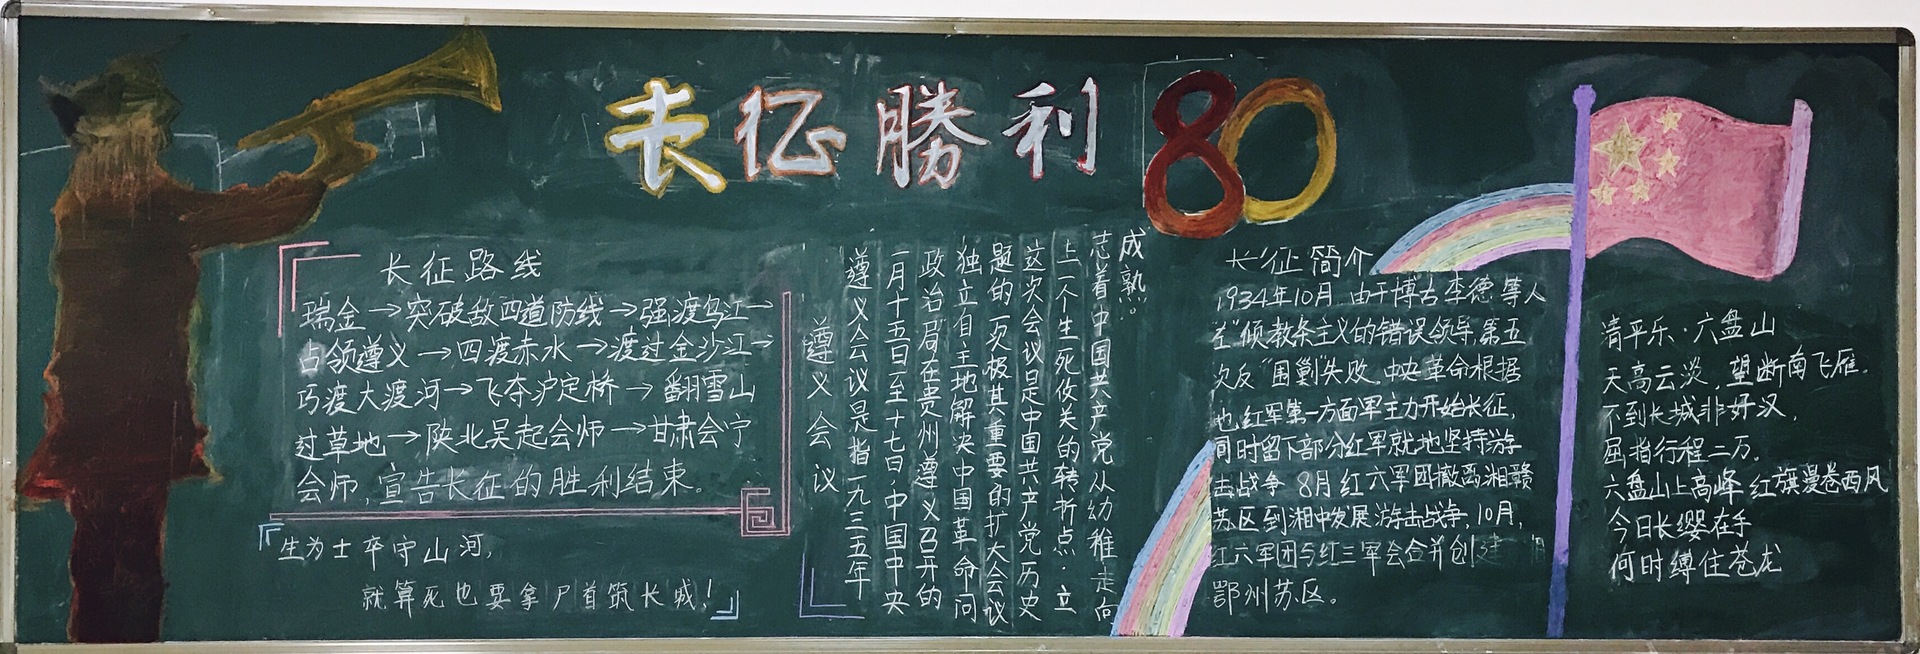 长征勝利80
长征路线
瑞金→突破敌四道防线→强渡乌江→
占领遵义→四渡赤水→渡过金沙江→
巧渡大渡河→飞夺泸定桥→翻雪山
过草地→陕北吴起会师→甘肃会宁
会师,宣告长征的胜利结束。
生为士卒守山河,
就算死也要拿尸首筑长城!
遵义会议
遵义会议是指一九三五年
一月十五日至十七日,中国中央
政治局在贵州遵义召开的
独立自主地解决中国革命问
题的一次极其重要的扩大会议
这次会议是中国共产党历史
上一个生死攸关的转折点.立
志着中国共产党从幼稚走向
成熟。
长征简介
1934年10月.由于博古李德等人
左"倾教条主义的错误领导,第五
次反"围剿"失败.中央革命根据
地,红军第一方面军主力开始长征,
同时留下部分红军就地坚持游
击战争 8月红六军团撤离湘赣
苏区到湘中发展游击战争,10月,
红六军团与红三军会合并创建
鄂州苏区。
清平乐·六盘山
天高云淡,望断南飞雁.
不到长城非好汉,
屈指行程二万.
六盘山上高峰 红旗漫卷西风
今日长缨在手
何时缚住苍龙